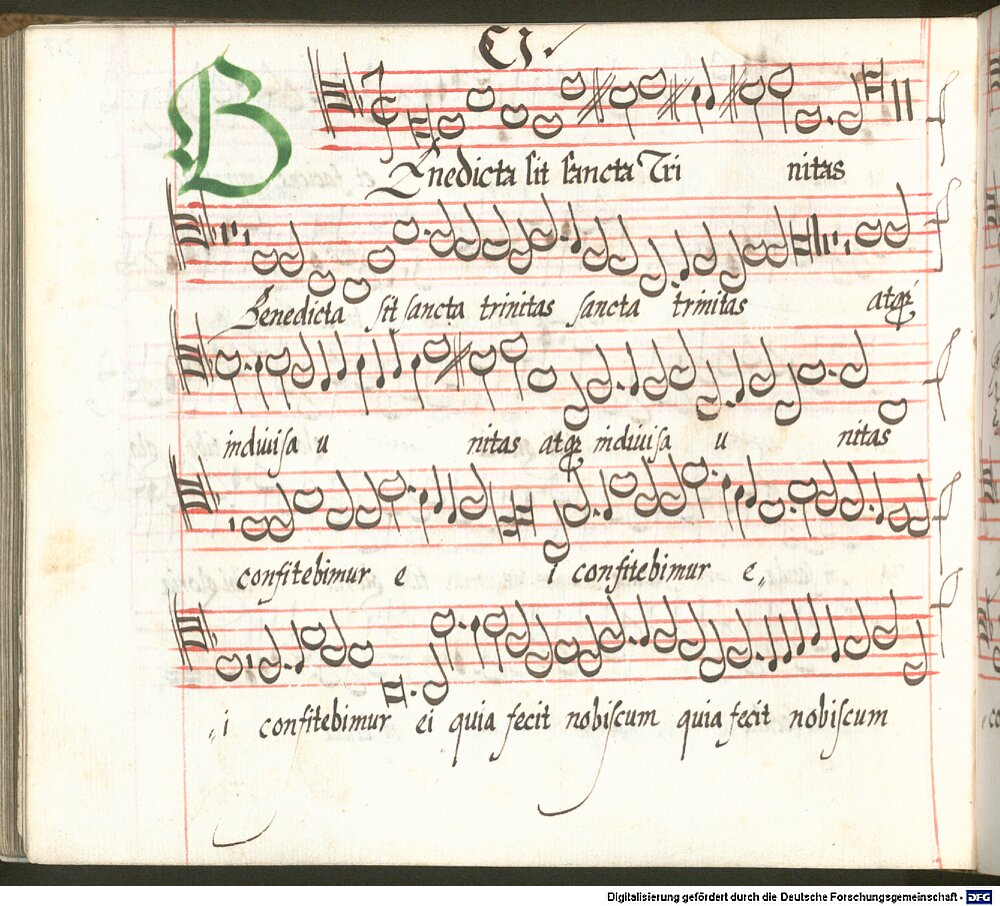 CI.
BEnedicta sit sancta Tri nitas
Benedicta sit sancta trinitas sancta trinitas atqȝ
indiuisa u nitas atqȝ indiuisa u nitas
confitebimur e i confitebimur e„
„i confitebimur ei quia fecit nobiscum quia fecit nobiscum
Digitalisierung gefördert durch die Deutsche Forschungsgemeinschaft - DFG